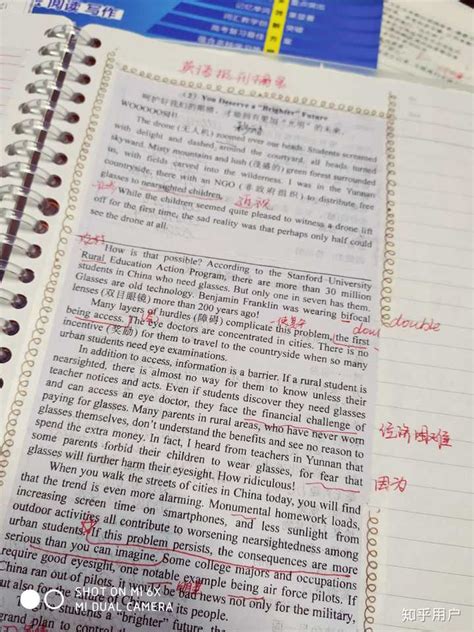 阅读 写作
英语报刊摘录
You Deserve a "Brighter" Future
呵护好我们的眼睛，才能拥有更加"光明"的未来。
WOOOOOSH!
The drone (无人机) zoomed over our heads. Students screamed
with delight and dashed around the courtyard, all heads turned
skyward. Misty mountains and lush (茂盛的) green forest surrounded
us, with fields carved into the wilderness. I was in the Yunnan
countryside, there with an NGO (非政府组织) to distribute free
glasses to nearsighted children.
While the children seemed quite pleased to witness a drone lift
off for the first time, the sad reality was that perhaps only half could
see the drone at all.
How is that possible? According to the Stanford University
Rural Education Action Program, there are more than 30 million
students in China who need glasses. But only one in seven has them.
Glasses are old technology. Benjamin Franklin was wearing bifocal
lenses (双目眼镜) more than 200 years ago!
double
Many layers of hurdles (障碍) complicate this problem, the first
being access. The eye doctors are concentrated in cities. There is no
incentive (奖励) for them to travel to the countryside when so many
urban students need eye examinations.
In addition to access, information is a barrier. If a rural student is
nearsighted, there is almost no way for them to know unless their
teacher notices and acts. Even if students discover they need glasses
and can access an eye doctor, they face the financial challenge of
paying for glasses. Many parents in rural areas, who have never worn
经济困难
glasses themselves, don't understand the benefits and see no reason to
spend the extra money. In fact, I heard from teachers in Yunnan that
some parents forbid their children to wear glasses, for fear that
因为
glasses will further harm their eyesight. How ridiculous!
When you walk the streets of cities in China today, you will find
that the trend is even more alarming. Monumental homework loads,
increasing screen time on smartphones, and less sunlight from
outdoor activities all contribute to worsening nearsightedness among
urban students. If this problem persists, the consequences are more
serious than you can imagine. Some college majors and occupations
require good eyesight, one notable example being air force pilots. If
China ran out of pilots, it would be bad news not only for the military,
but also for China and its people.
students a "brighter" future, the
grand plan to control
SHOT ON MI 6X
MI DUAL CAMERA
知乎用户